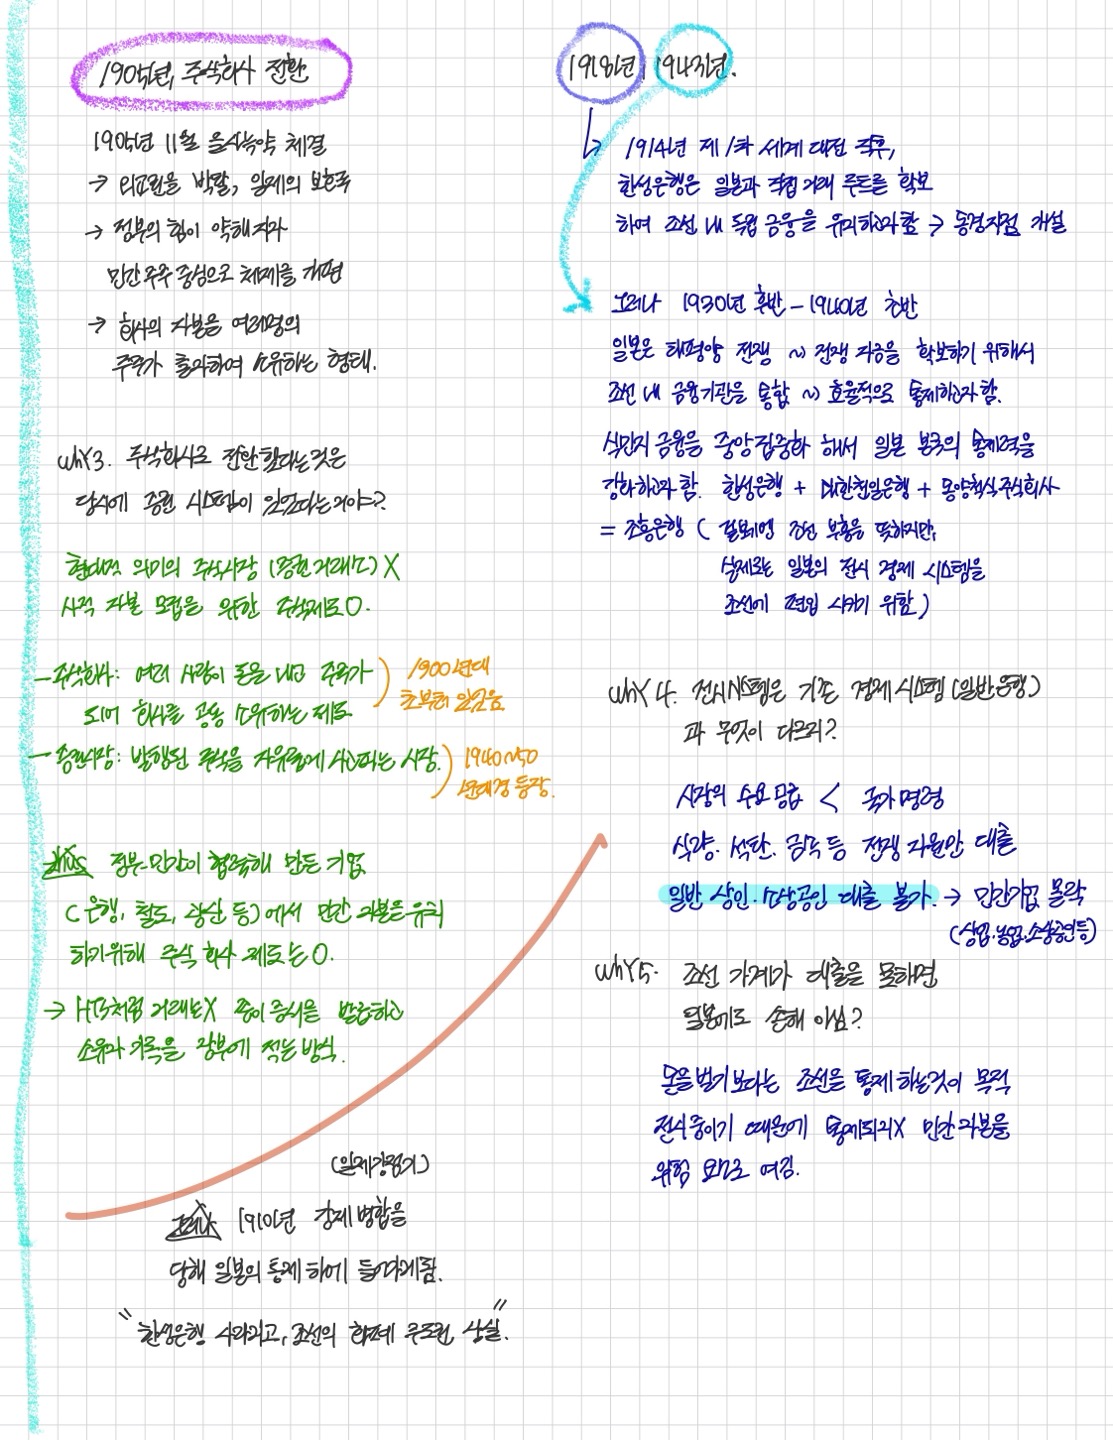 1905년, 주식회사 전환
1905년 11월 을사늑약 체결
→ 외교권을 박탈, 일제의 보호국
→ 정부의 힘이 약해지자
민간주주 중심으로 체제를 개편
→ 회사의 자본을 여러명의
주주가 출자하여 소유하는 형태.
whY3. 주식회사로 전환했다는것은
당시에 증권 시스템이 있었다는거야?
현대적 의미의 주식시장 (증권거래소) X
사적 자본 모집을 위한 주식제도 O.
- 주식회사: 여러 사람이 돈을 내고 주주가
되어 회사를 공동 소유하는 제도
1900년대
초부터 있었음
- 증권시장: 발행된 주식을 자유롭게 사고파는 시장.
1940~50
년대경 등장.
정부-민간이 협력해 만든 기업
(은행, 철도, 광산 등)에서 민간 자본을 유치
하기위해 주식 회사 제도는 O.
→ HTS처럼 거래는 X 종이 증서를 발급하고
소유자 기록을 장부에 적는 방식.
(일제강점기)
그러나 1910년 강제 병합을
당해 일본의 통제 하에 들어가게됨.
"한성은행 사라지고, 조선의 화폐 주도권 상실."
1918년, 1943년.
↳ 1914년 제 1차 세계 대전 직후,
한성은행은 일본과 직접 거래 루트를 확보
하여 조선 내 독립 금융을 유지하고자 함 → 동경지점 개설
그러나 1930년 후반 - 1940년 초반
일본은 태평양 전쟁 ~> 전쟁 자금을 확보하기 위해서
조선 내 금융기관을 통합 ~> 효율적으로 통제하고자 함.
식민지 금융을 중앙집중화 해서 일본 본국의 통제력을
강화하고자 함. 한성은행 + 대한천일은행 + 동양척식주식회사
= 조흥은행 ( 겉보기엔 조선 부흥을 뜻하지만,
실제로는 일본의 전시 경제 시스템을
조선에 편입 시키기 위함 )
whY 4. 전시시스템은 기존 경제 시스템 (일반 은행)
과 무엇이 다르지?
시장의 수요 공급 < 국가 명령
식량. 석탄. 금속 등 전쟁 자원만 대출
일반 상인. 소상공인 대출 불가. → 민간기업 몰락
(상업. 농업. 소상공인등)
whY5. 조선 가계가 대출을 못하면
일본에도 손해 아님?
돈을 벌기 보다는 조선을 통제하는것이 목적
전시중이기 때문에 통제되지 X 민간 자본을
위험 요인으로 여김.